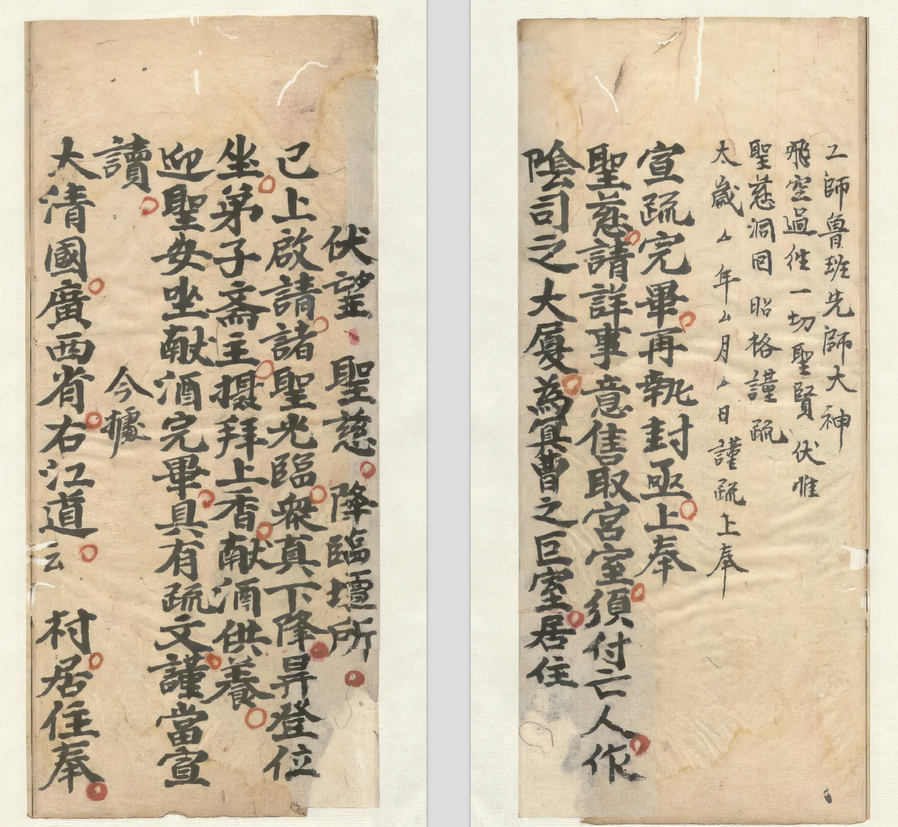 工師魯班先師大神
飛空過往一切聖賢 伏惟
聖慈洞回 昭格謹疏
太歲厶年厶月厶日謹疏上奉
宣疏完畢再執封函上奉
聖慈請詳事意售取宮室須付亡人作
陰司之大厦為冥曹之巨室居住
伏望 聖慈 降臨壇所
已上啟請諸聖光臨衆真下降昇登位
坐弟子斎主攝拜上香献酒供養
迎聖安坐献酒完畢具有疏文謹當宣
讀 今據
大清國廣西省右江道云 村居住奉